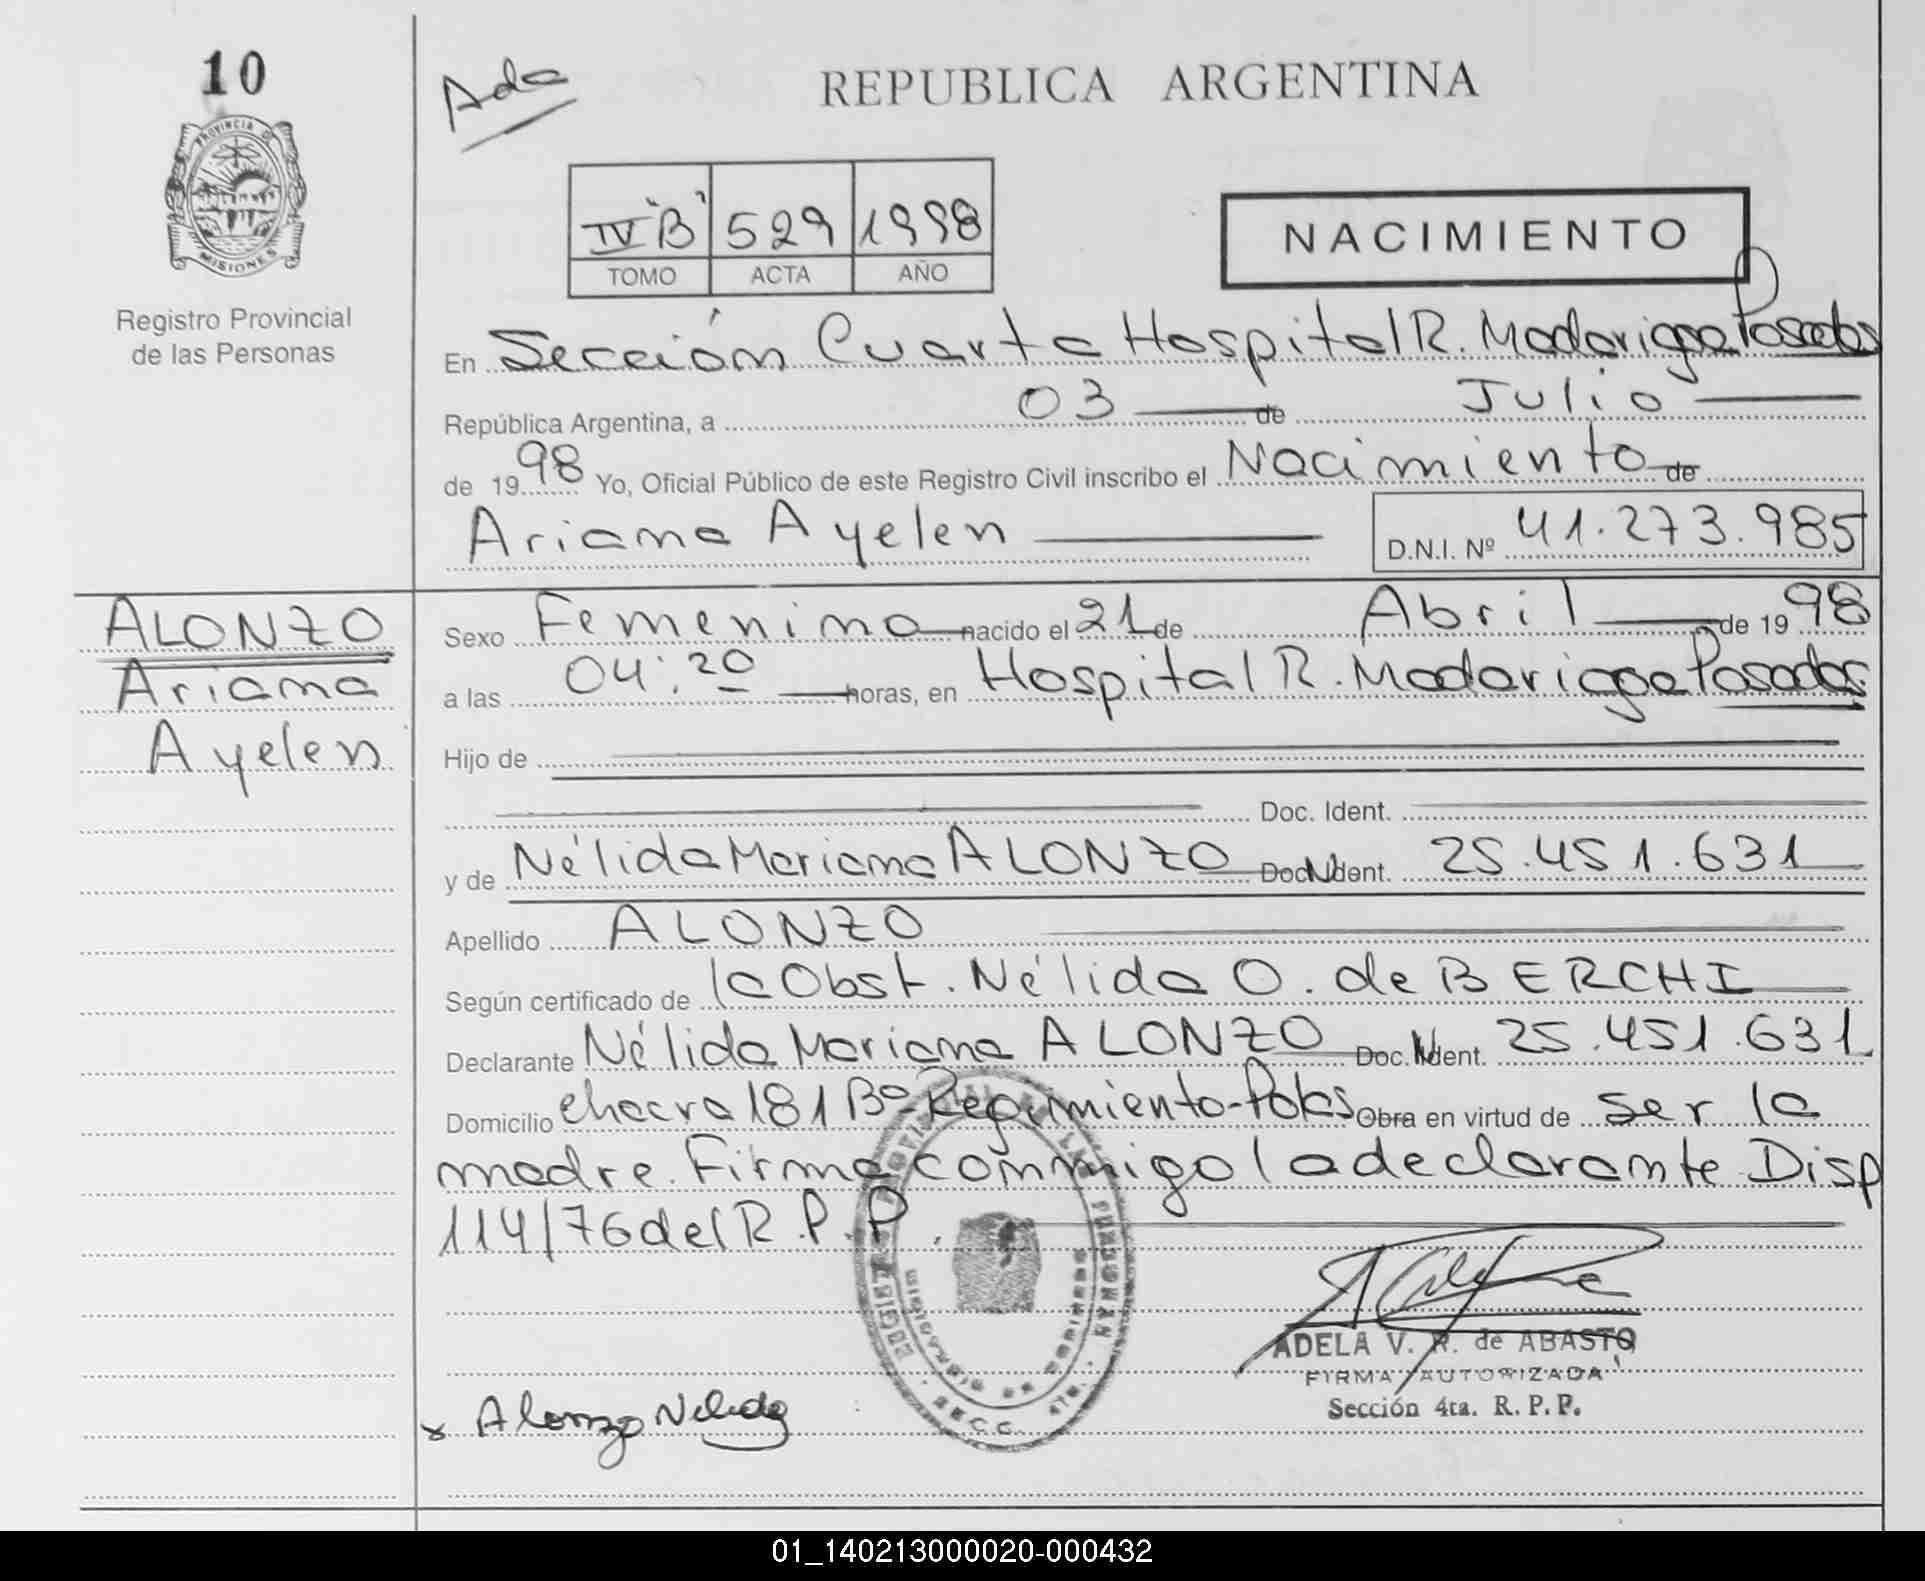 10
Ada
REPUBLICA ARGENTINA
PROVINCIA D
MISIONES
Registro Provincial
de las Personas
IV "B" 529 1998
TOMO ACTA AÑO
NACIMIENTO
En Sección Cuarta Hospital R. Madariaga Posadas
República Argentina, a 03 de Julio
de 1998 Yo, Oficial Público de este Registro Civil inscribo el Nacimiento de
Ariana Ayelen D.N.I. Nº 41.273.985
ALONZO
Ariana
Ayelen
Sexo Femenino nacido el 21 de Abril de 1998
a las 04:20 horas, en Hospital R. Madariaga Posadas
Hijo de
Doc. Ident.
y de Nélida Mariana ALONZO Doc. Ident. 25.451.631
Apellido ALONZO
Según certificado de la Obst. Nélida O. de BERCHI
Declarante Nélida Mariana ALONZO Doc. Ident. 25.451.631
Domicilio chacra 181 Bº Regimiento-Pdas Obra en virtud de ser la
madre. Firma conmigo la declarante Disp
114/76 del R.P.P.
ADELA V. R. de ABASTO
FIRMA AUTORIZADA
Sección 4ta. R. P. P.
x Alonzo Nelida
SECC. 4TA.
01_140213000020-000432